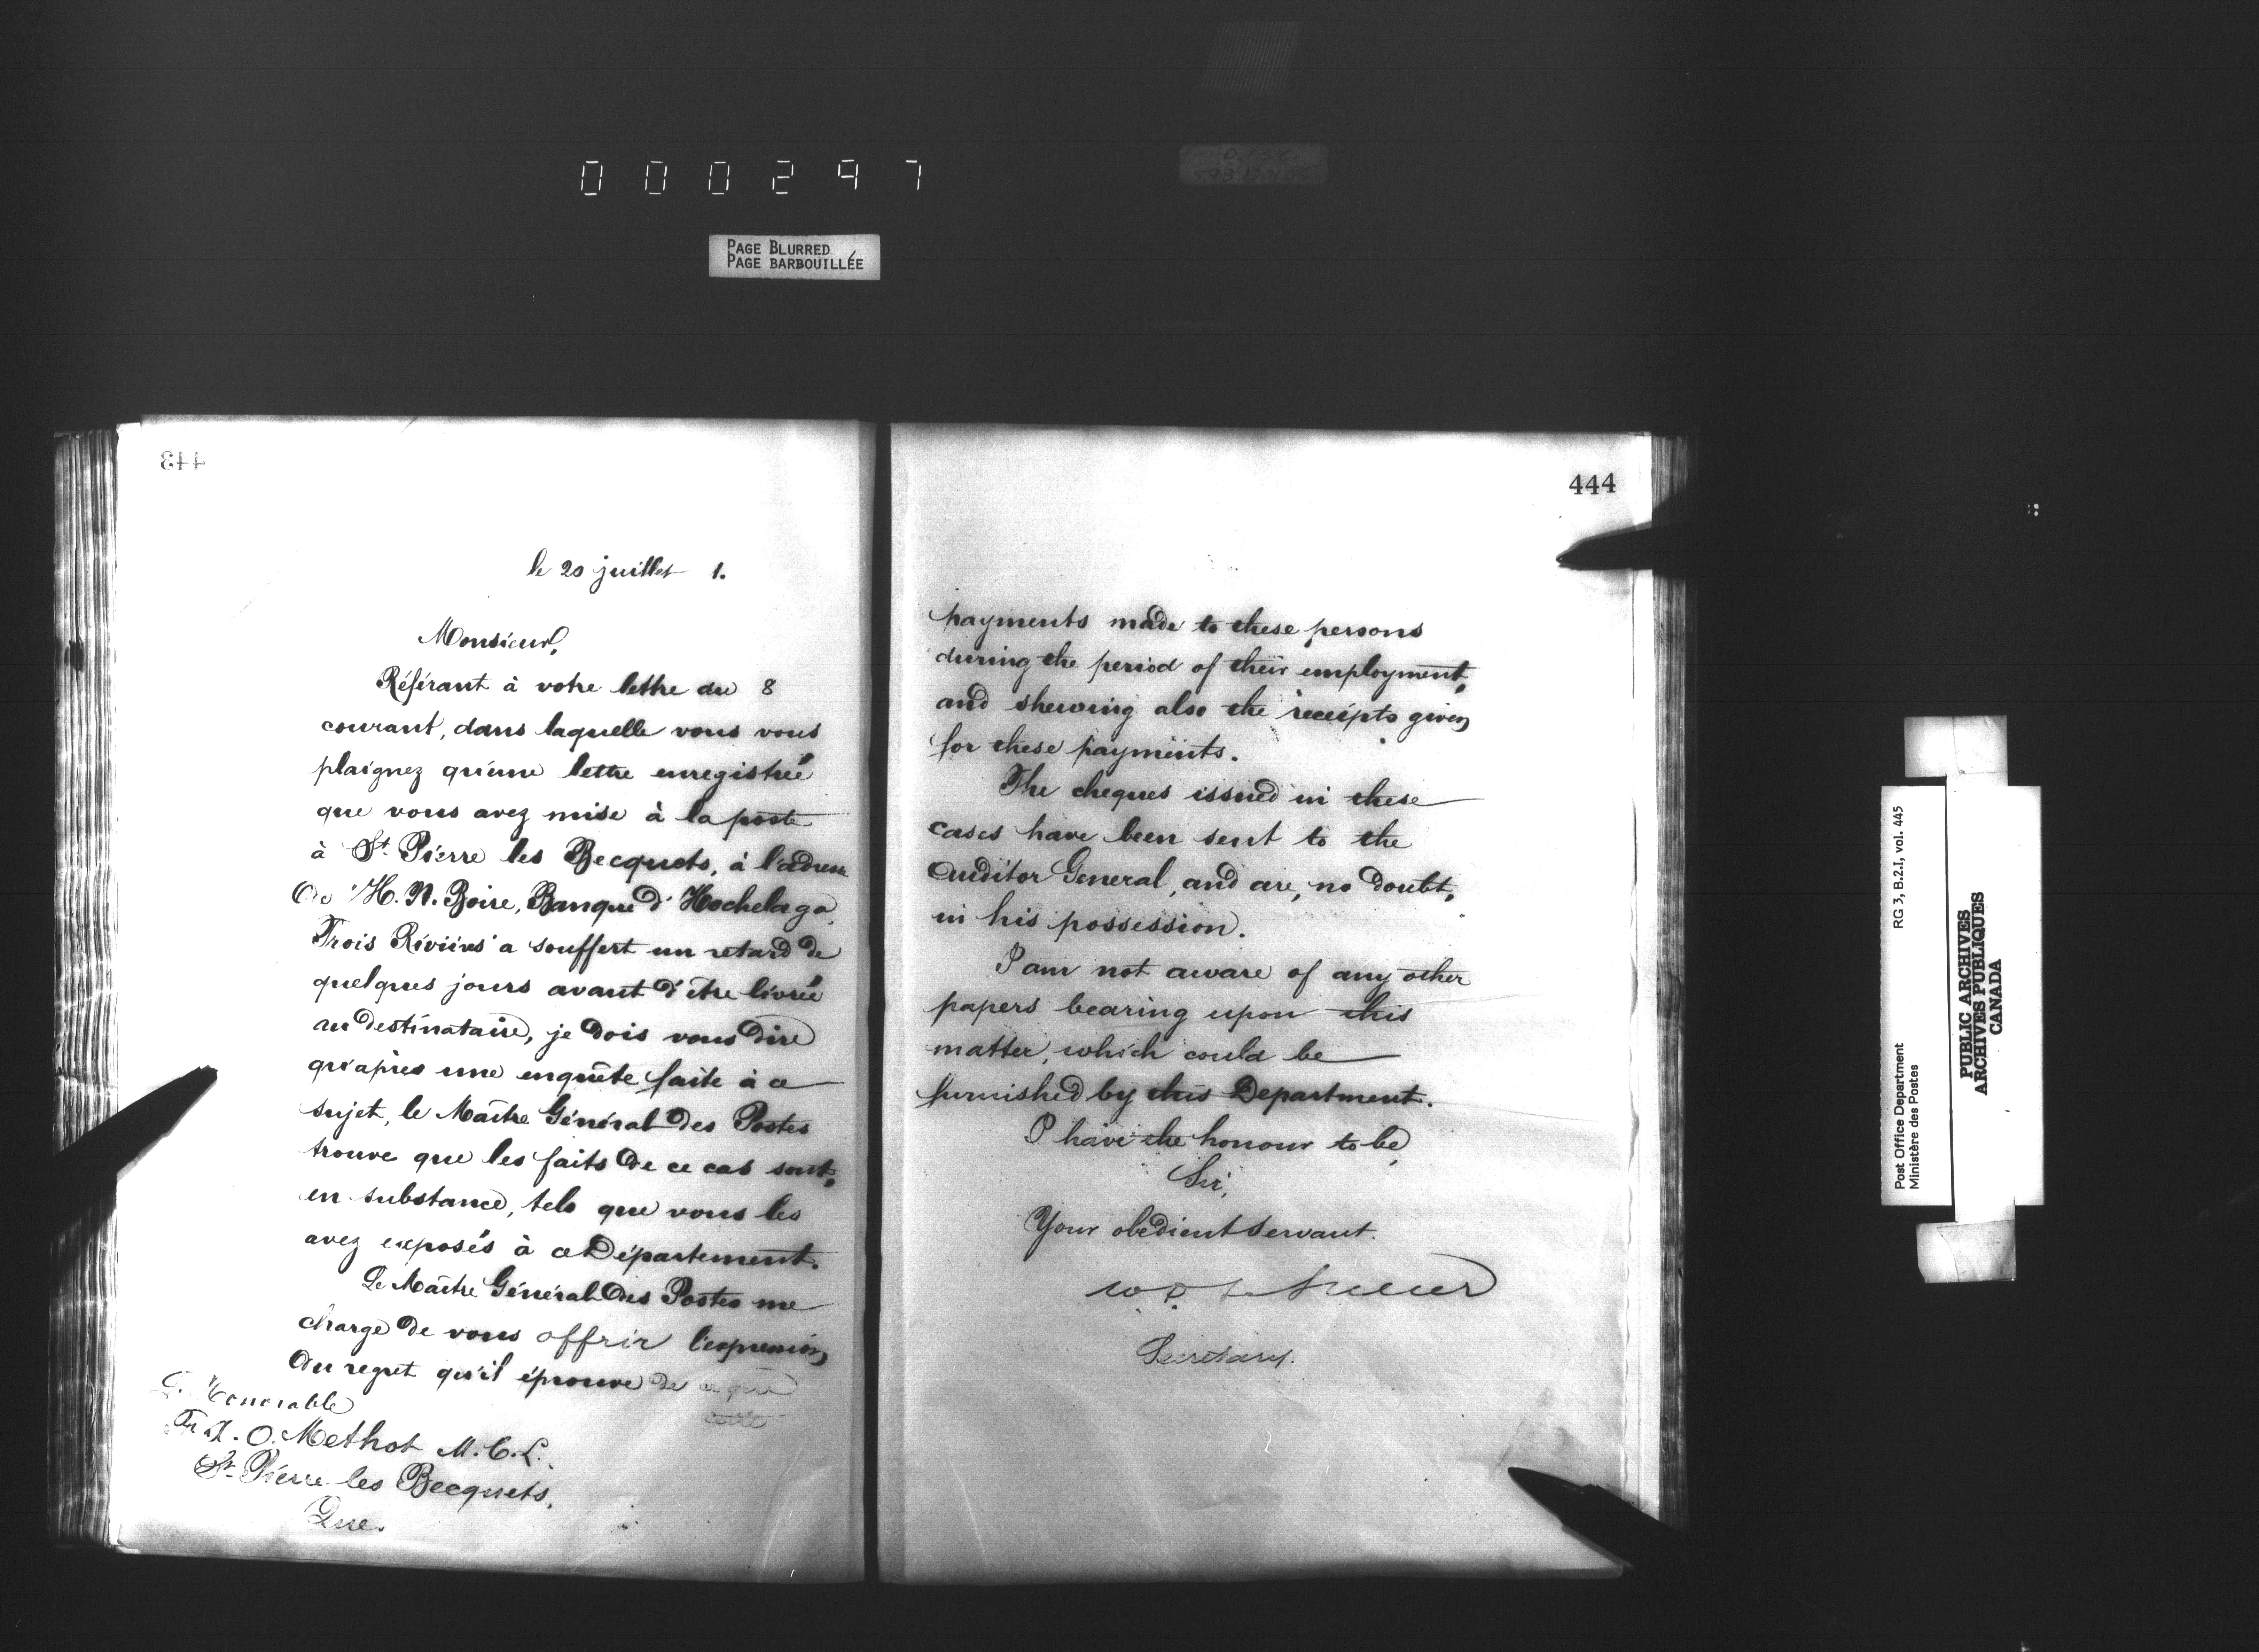 000297
PAGE BLURRED
PAGE BARBOUILLÉE
443
le 20 juillet 1.
Monsieur,
Référant à votre lettre du 8
courant, dans laquelle vous vous
plaignez qu'une lettre enregistrée
que vous avez mise à la poste
à St. Pierre les Becquets, à l'adresse
de H. N. Boire, Banque d'Hochelaga,
Trois Rivières a souffert un retard de
quelques jours avant d'être livrée
au destinataire, je dois vous dire
qu'après une enquête faite à ce
sujet, le Maître Général des Postes
trouve que les faits de ce cas sont,
en substance, tels que vous les
avez exposés à ce Département.
Le Maître Général des Postes me
charge de vous offrir l'expression
du regret qu'il éprouve de ce que
cette
Honorable
O. Methot M.C.L.
St. Pierre les Becquets,
Que.
444
payments made to these persons
during the period of their employment,
and shewing also the receipts given
for these payments.
The cheques issued in these
cases have been sent to the
Auditor General, and are, no doubt,
in his possession.
I am not aware of any other
papers bearing upon this
matter, which could be
furnished by this Department.
I have the honour to be,
Sir,
Your obedient servant.
Secretary.
Post Office Department
Ministère des Postes
RG 3, B.2.I, vol. 445
PUBLIC ARCHIVES
ARCHIVES PUBLIQUES
CANADA